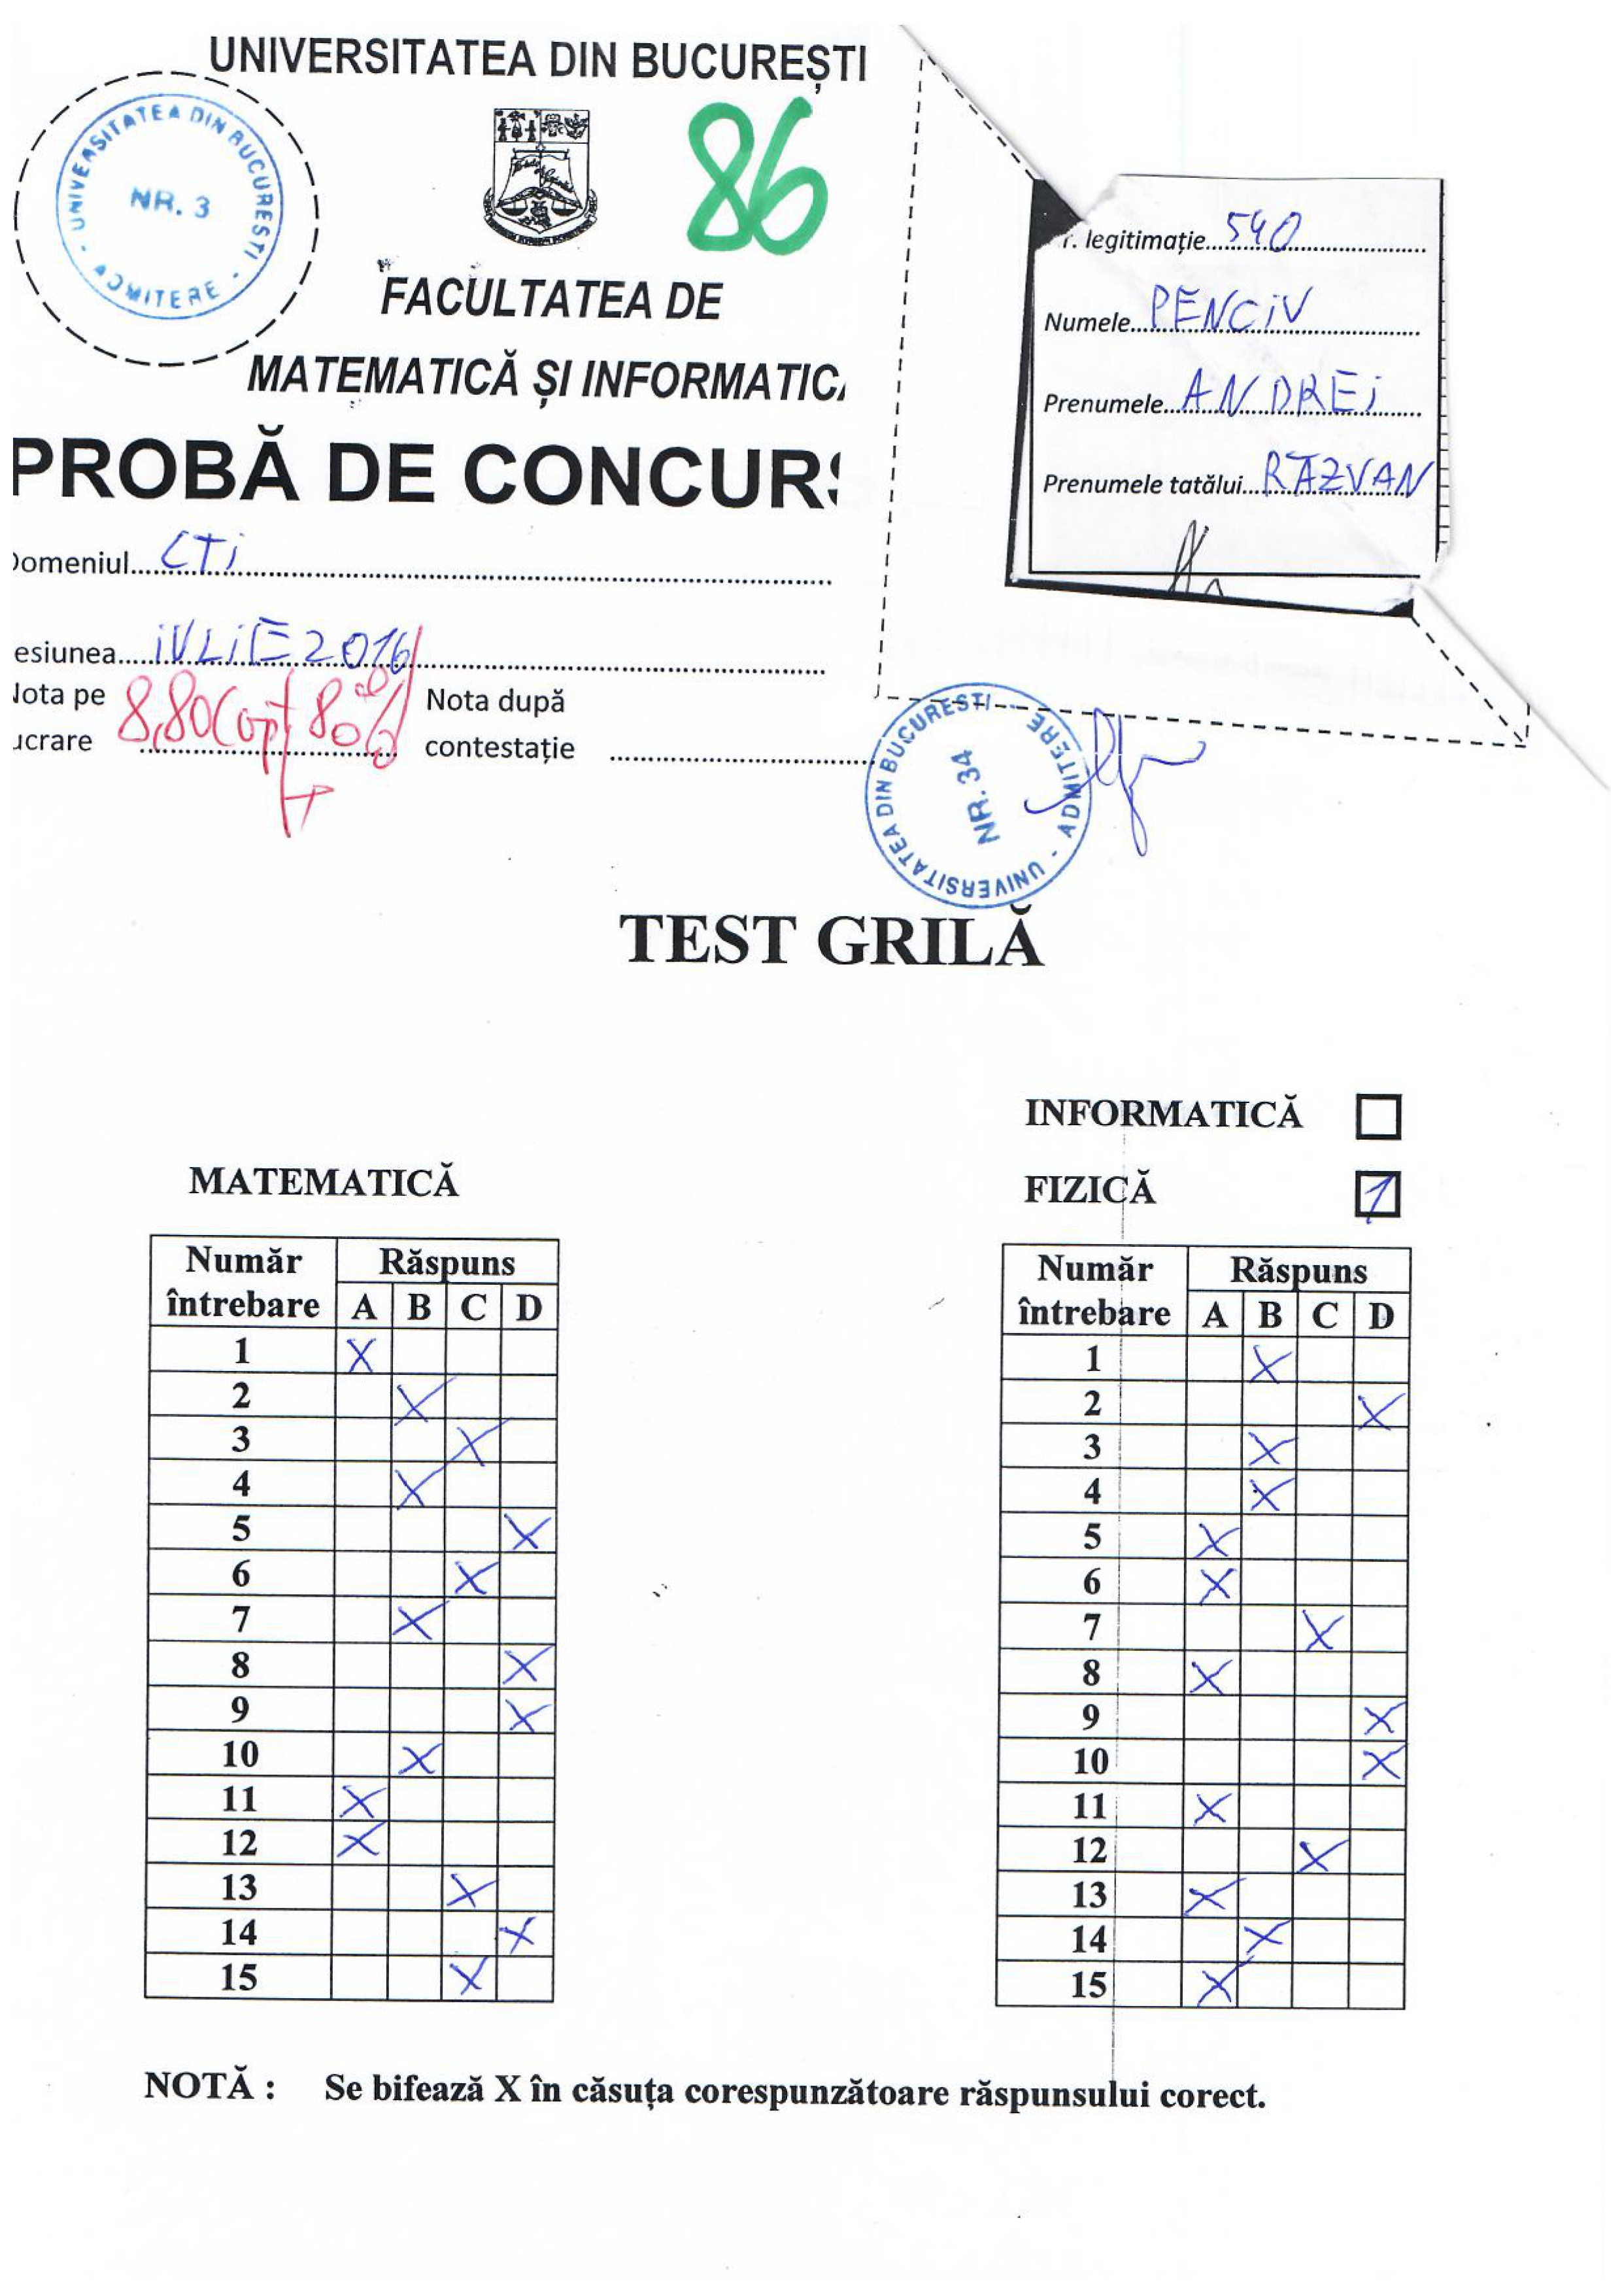 UNIVERSITATEA DIN BUCUREȘTI
UNIVERSITATEA DIN BUCURESTI - ADMITERE -
NR. 3
86
FACULTATEA DE
MATEMATICĂ ȘI INFORMATIC
PROBĂ DE CONCURS
Domeniul CTI
esiunea IULIE 2016
Nota pe
ucrare 8,80 (opt 80%)
Nota după
contestație
r. legitimație 540
Numele PENCIU
Prenumele ANDREI
Prenumele tatălui RĂZVAN
UNIVERSITATEA DIN BUCURESTI - ADMITERE -
NR. 34
TEST GRILĂ
INFORMATICĂ
FIZICĂ 1
MATEMATICĂ
Număr întrebare Răspuns
A B C D
1 X
2 X
3 X
4 X
5 X
6 X
7 X
8 X
9 X
10 X
11 X
12 X
13 X
14 X
15 X
Număr întrebare Răspuns
A B C D
1 X
2 X
3 X
4 X
5 X
6 X
7 X
8 X
9 X
10 X
11 X
12 X
13 X
14 X
15 X
NOTĂ : Se bifează X în căsuța corespunzătoare răspunsului corect.